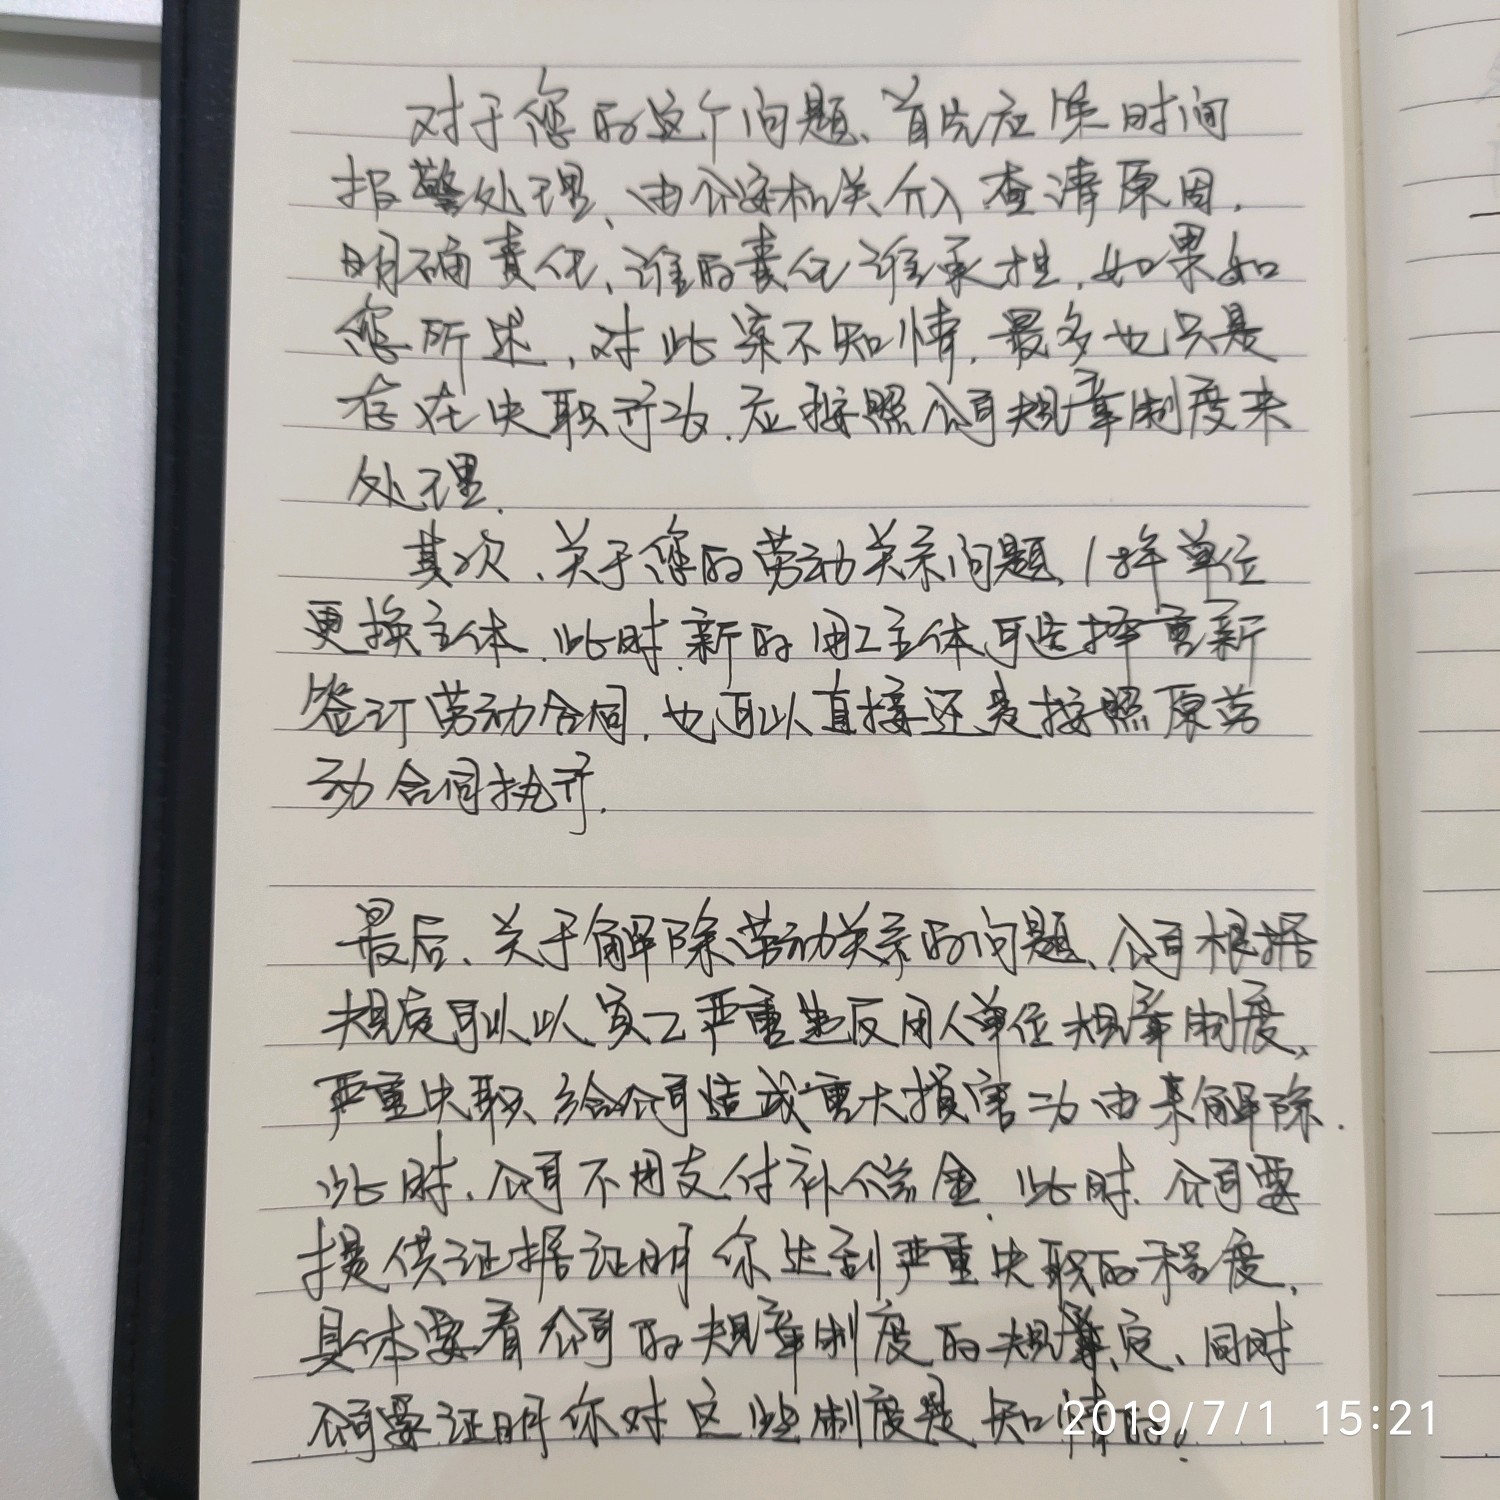 对于您的这个问题、首先应第一时间
报警处理、由公安机关介入查清原因.
明确责任、谁的责任谁承担.如果如
您所述,对此案不知情.最多也只是
存在失职行为.应按照公司规章制度来
处理.
其次、关于您的劳动关系问题、单位
更换主体.此时.新的用工主体可选择重新
签订劳动合同.也可以直接还是按照原劳
动合同执行.
最后、关于解除劳动关系的问题、公司根据
规定可以以员工严重违反用人单位规章制度、
严重失职、给公司造成重大损害为由来解除.
此时.公司不用支付补偿金.此时.公司要
提供证据证明你达到严重失职的程度.
具体要看公司的规章制度的规定、同时
公司要证明你对这些制度是知情的.
2019/7/1 15:21